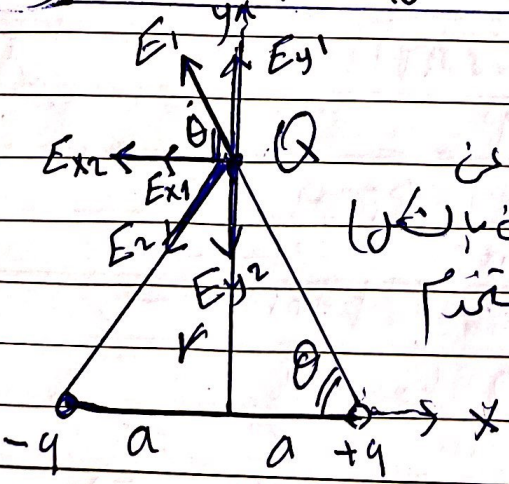 y
E1 Ey1
θ
Q
Ex2 Ex1
عن
E2
Ey2
r
θ
x
-q a a +q